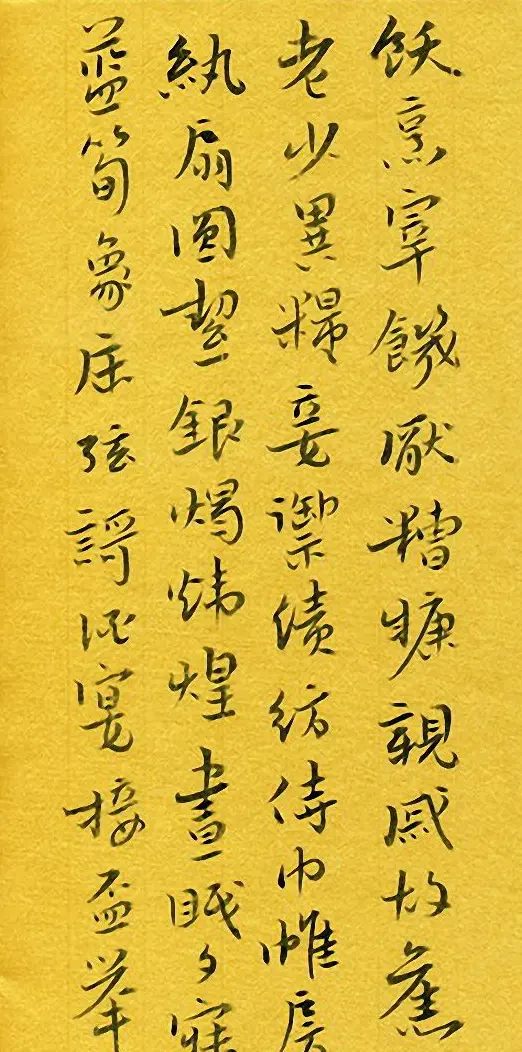 飫烹宰饑厭糟糠親戚故舊
老少異糧妾御績紡侍巾帷房
紈扇圓潔銀燭煒煌晝眠夕寐
藍筍象床弦歌酒宴接杯舉